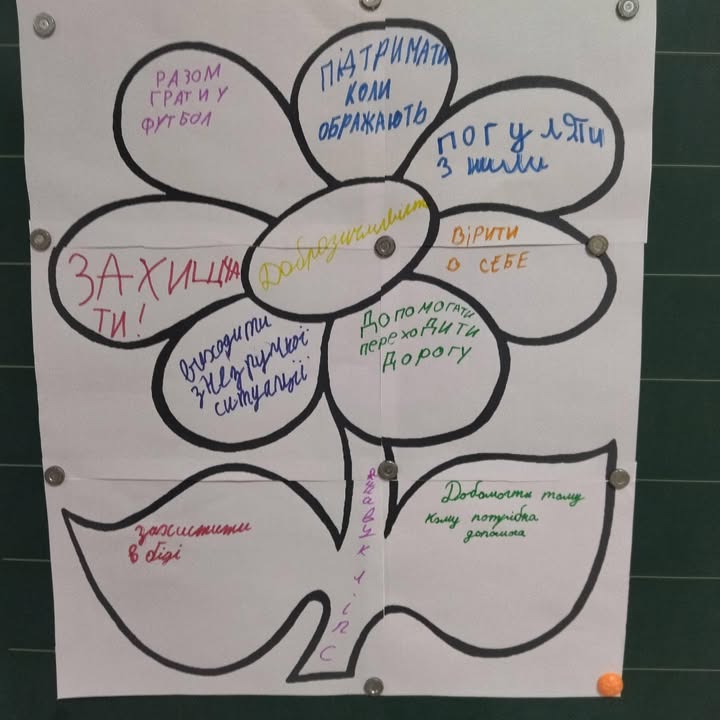 РАЗОМ
ГРАТИ У
ФУТБОЛ
ПІДТРИМАТИ
КОЛИ
ОБРАЖАЮТЬ
ПОГУЛЯТИ
З ними
ЗАХИЩА
ТИ!
Доброзичливість
ВІРИТИ
В СЕБЕ
виходити
з незручної
ситуації
ДОПОМОГАТИ
ПЕРЕХОДИТИ
ДОРОГУ
захистити
в біді
Спілкування
Добомогти тому
кому потрібна
допомога